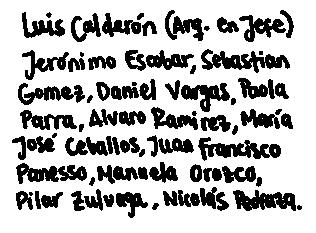 Luis Calderón (Arq. en Jefe)
Jerónimo Escobar, Sebastian
Gomez, Daniel Vargas, Paola
Parra, Alvaro Ramirez, María
José Ceballos, Juan Francisco
Panesso, Manuela Orozco,
Pilar Zuluaga, Nicolás Pedraza.